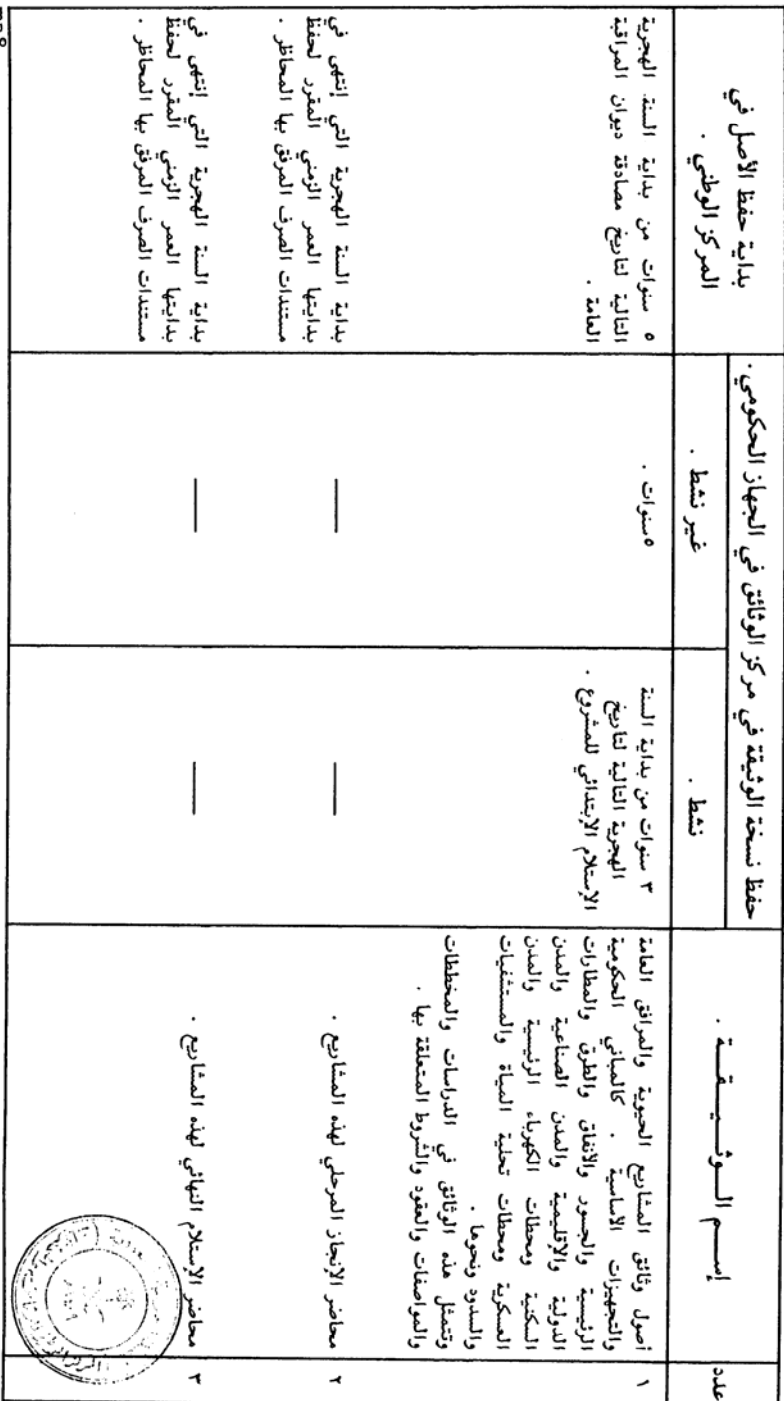 عدد
إســم الــوثــيــقــة .
حفظ نسخة الوثيقة في مركز الوثائق في الجهاز الحكومي .
نشط .
غير نشط .
بداية حفظ الأصل في
المركز الوطني .
١
أصول وثائق المشاريع الحيوية والمرافق العامة
والتجهيزات الاساسية . كالمباني الحكومية
الرئيسية والجسور والانفاق والطرق والمطارات
الدولية والإقليمية والمدن الصناعية والمدن
السكنية ومحطات الكهرباء الرئيسية والمدن
العسكرية ومحطات تحلية المياة والمستشفيات
والسدود ونحوها .
وتتمثل هذه الوثائق في الدراسات والمخططات
والمواصفات والعقود والشروط المتعلقة بها .
٣ سنوات من بداية السنة
الهجرية التالية لتاريخ
الإستلام الإبتدائي للمشروع .
٥سنوات .
٥ سنوات من بداية السنة الهجرية
التالية لتاريخ مصادقة ديوان المراقبة
العامة .
٢
محاضر الإنجاز المرحلي لهذه المشاريع .
بداية السنة الهجرية التي إنتهى في
بدايتها العمر الزمني المقرر لحفظ
مستندات الصرف المرفق بها المحاظر .
٣
محاضر الإستلام النهائي لهذه المشاريع .
بداية السنة الهجرية التي إنتهى في
بدايتها العمر الزمني المقرر لحفظ
مستندات الصرف المرفق بها المحاظر .